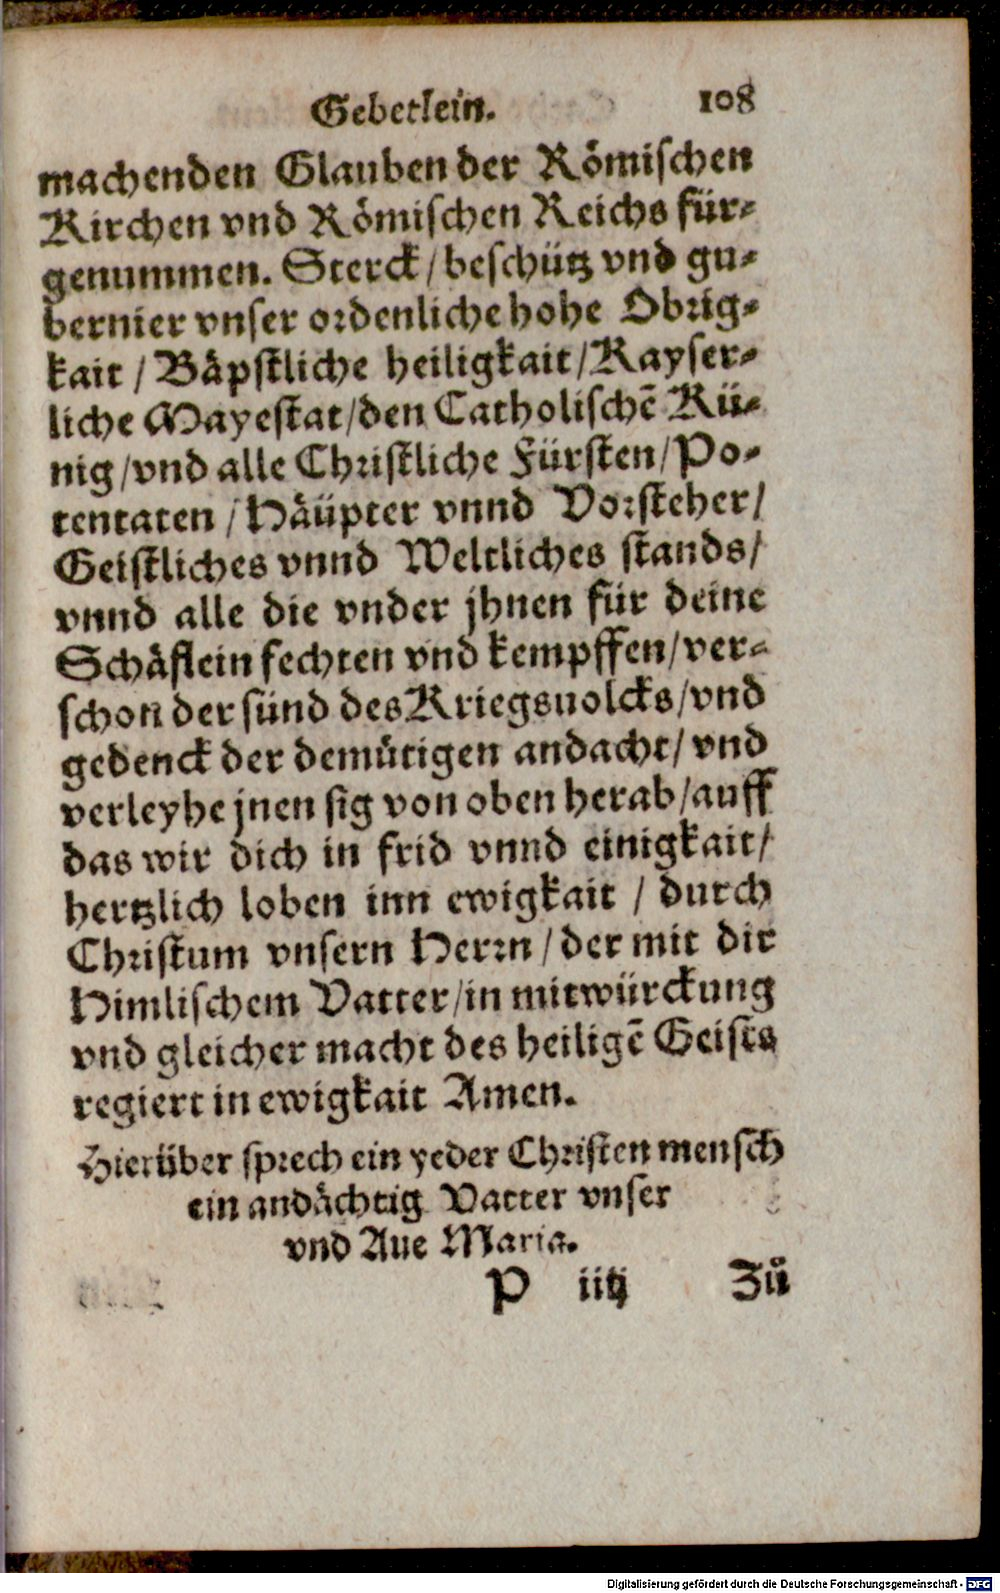 Gebetlein. 108
machenden Glauben der Römischen
Kirchen vnd Römischen Reichs für⸗
genummen. Sterck / beschütz vnd gu⸗
bernier vnser ordenliche hohe Obrig⸗
kait / Bäpstliche heiligkait / Kayser⸗
liche Mayestat / den Catholischẽ Kü⸗
nig / vnd alle Christliche Fürsten / Po⸗
tentaten / Häüpter vnnd Vorsteher /
Geistliches vnnd Weltliches stands /
vnnd alle die vnder jhnen für deine
Schäflein fechten vnd kempffen / ver⸗
schon der sünd des Kriegsuolcks / vnd
gedenck der demütigen andacht / vnd
verleyhe jnen sig von oben herab / auff
das wir dich in frid vnnd einigkait /
hertzlich loben inn ewigkait / durch
Christum vnsern Herrn / der mit dir
Himlischem Vatter / in mitwürckung
vnd gleicher macht des heiligẽ Geists
regiert in ewigkait Amen.
Hierüber sprech ein yeder Christen mensch
ein andächtig Vatter vnser
vnd Aue Maria.
P iiij Zů
Digitalisierung gefördert durch die Deutsche Forschungsgemeinschaft - DFG